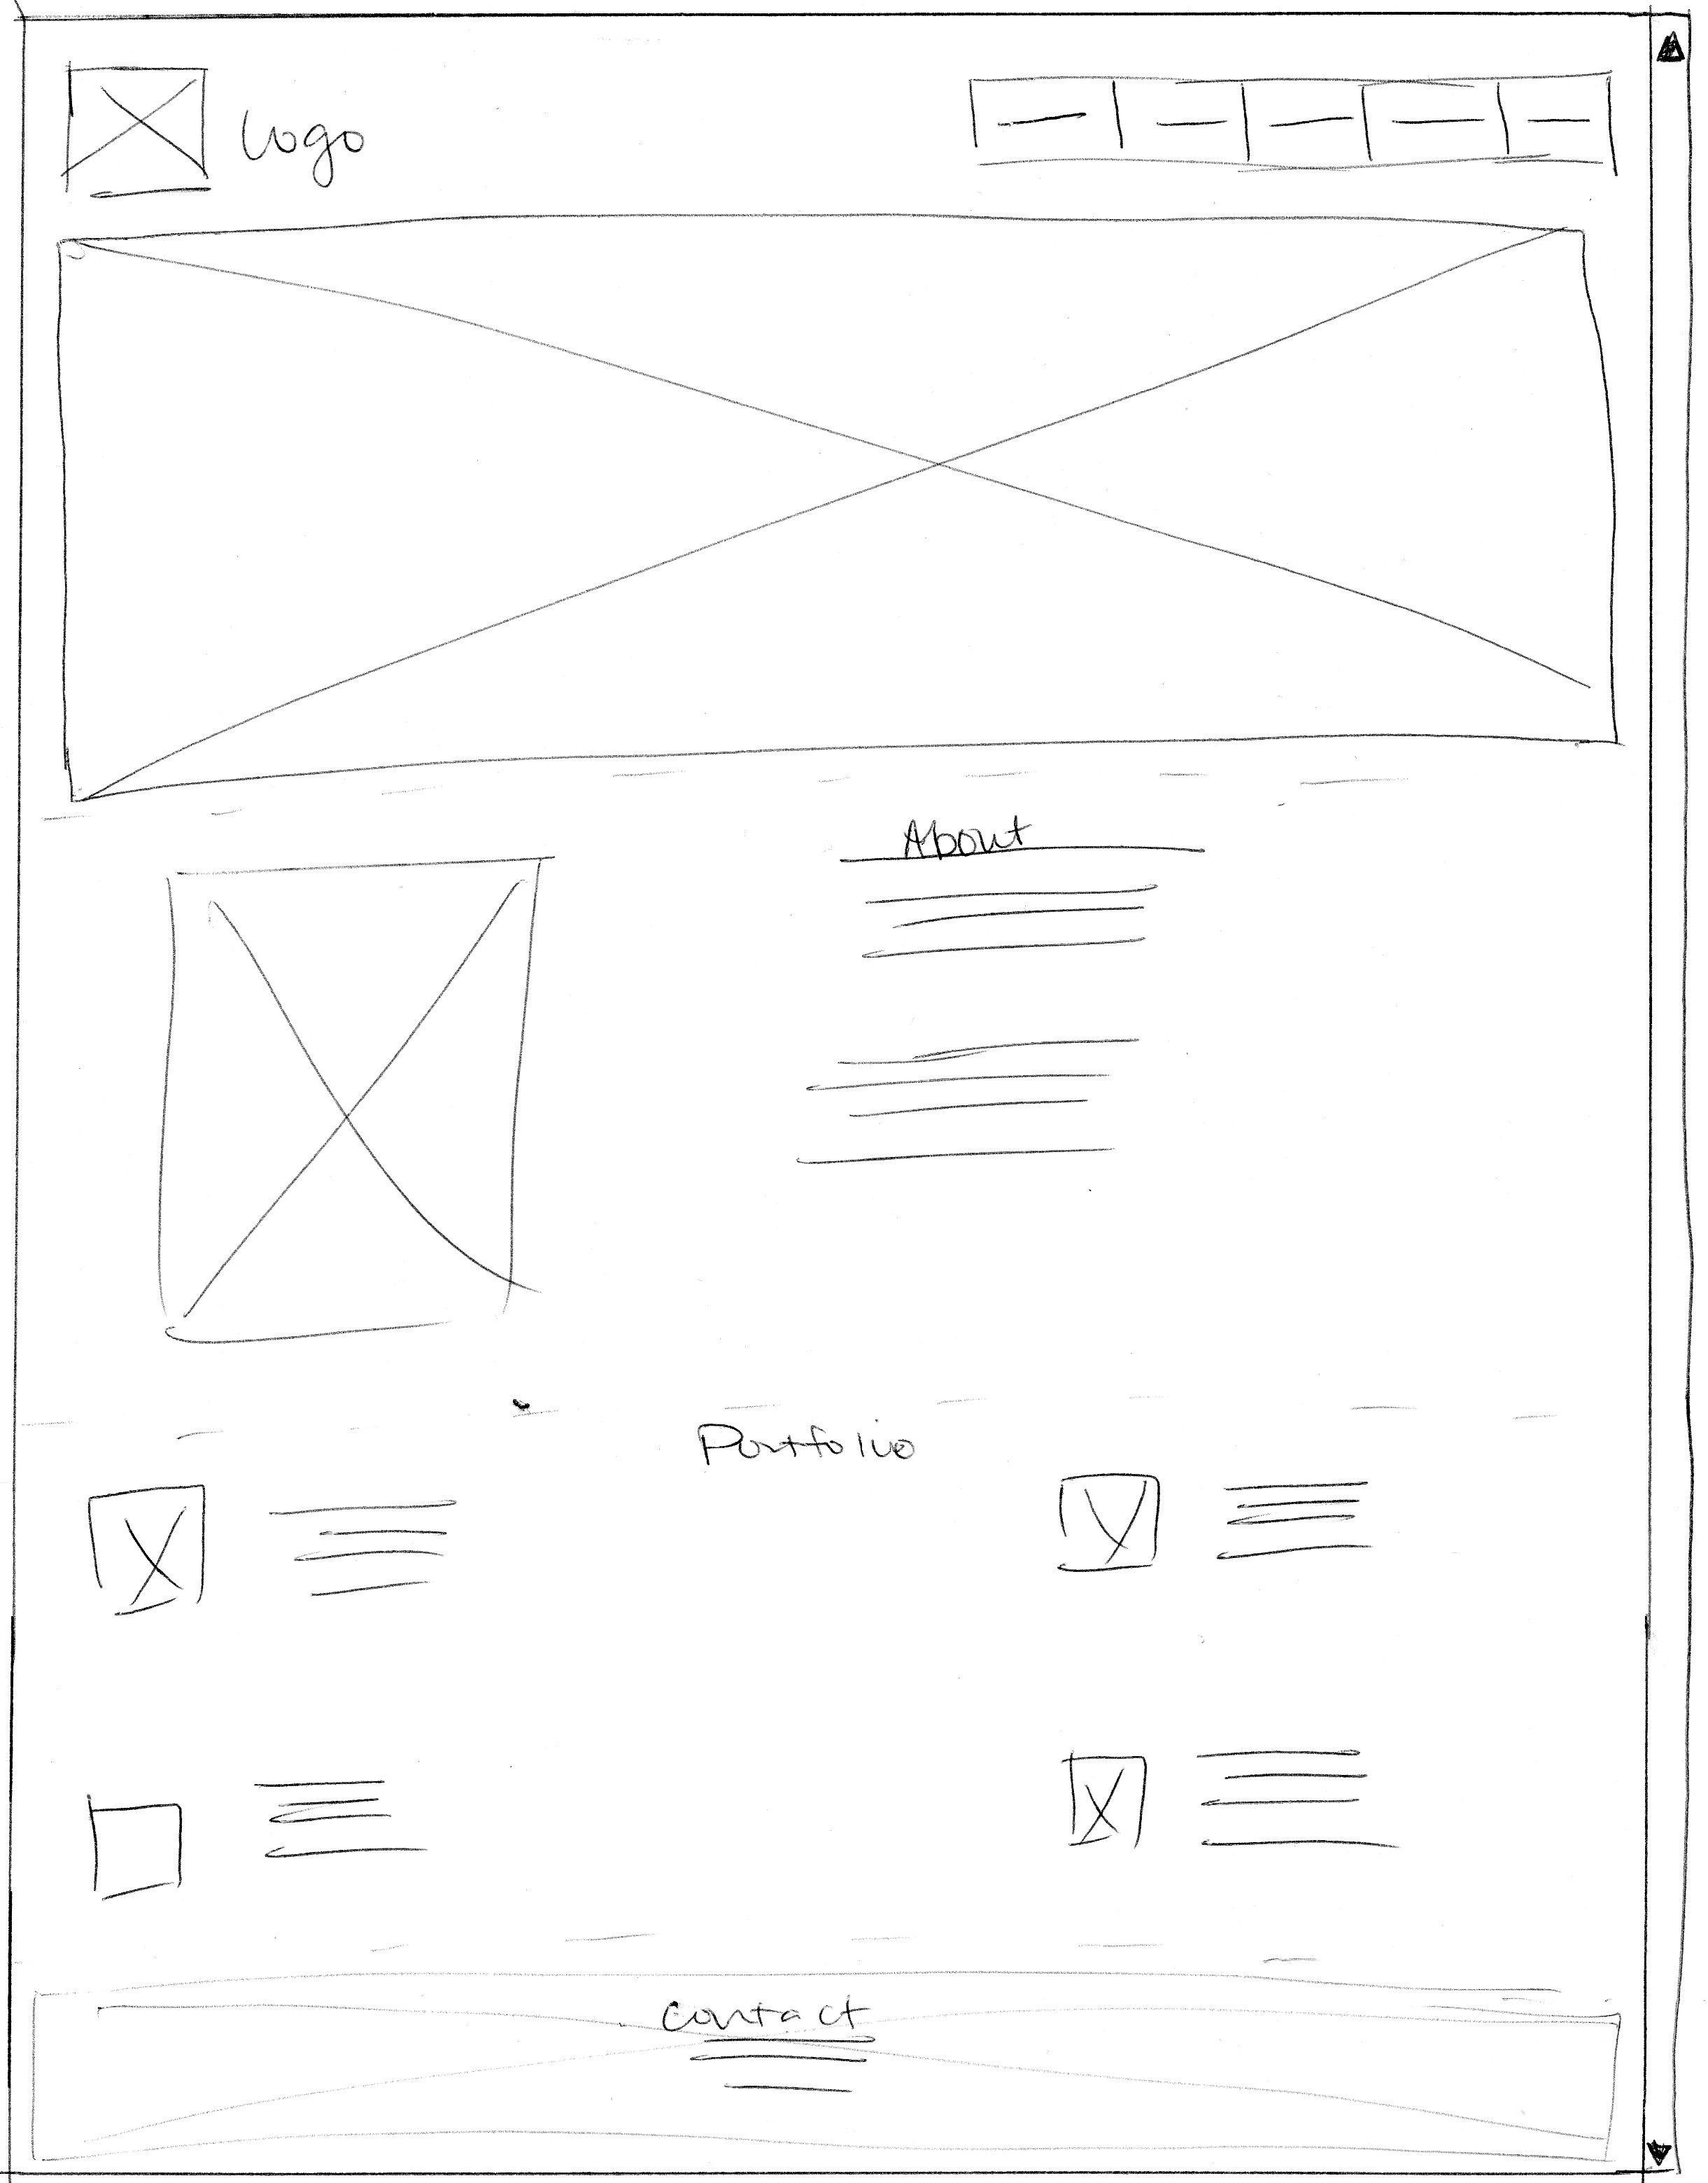 Logo
About
Portfolio
Contact